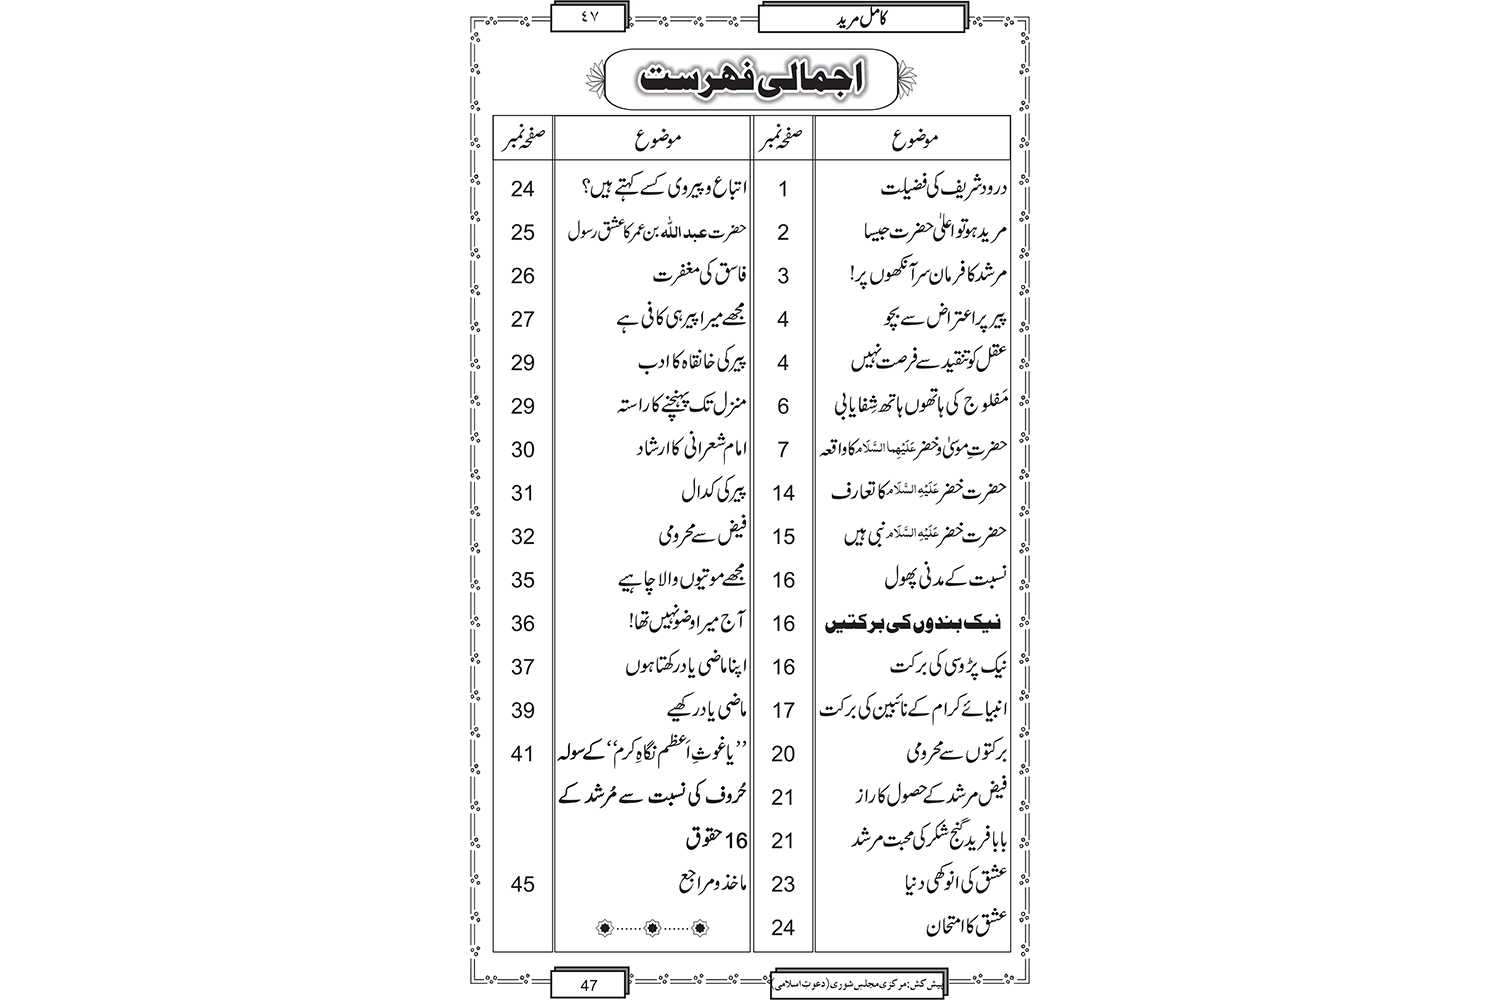 کامل مرید
٤٧
اجمالی فهرست
موضوع صفحہ نمبر
درود شریف کی فضیلت 1
مرید ہو تو اعلیٰ حضرت جیسا 2
مرشد کا فرمان سر آنکھوں پر! 3
پیر پر اعتراض سے بچو 4
عقل کو تنقید سے فرصت نہیں 4
مَفلوج کی ہاتھوں ہاتھ شِفایابی 6
حضرتِ موسیٰ و خضر عَلَیْهِما السَّلَام کا واقعہ 7
حضرت خضر عَلَیْهِ السَّلَام کا تعارف 14
حضرت خضر عَلَیْهِ السَّلَام نبی ہیں 15
نسبت کے مدنی پھول 16
نیک بندوں کی برکتیں 16
نیک پڑوسی کی برکت 16
انبیائے کرام کے نائبین کی برکت 17
برکتوں سے محرومی 20
فیض مرشد کے حصول کا راز 21
بابا فرید گنج شکر کی محبت مرشد 21
عشق کی انوکھی دنیا 23
عشق کا امتحان 24
موضوع صفحہ نمبر
اتباع و پیروی کسے کہتے ہیں؟ 24
حضرت عبد اللہ بن عمر کا عشق رسول 25
فاسق کی مغفرت 26
مجھے میرا پیر ہی کافی ہے 27
پیر کی خانقاہ کا ادب 29
منزل تک پہنچنے کا راستہ 29
امام شعرانی کا ارشاد 30
پیر کی کدال 31
فیض سے محرومی 32
مجھے موتیوں والا چاہیے 35
آج میرا وضو نہیں تھا! 36
اپنا ماضی یاد رکھتا ہوں 37
ماضی یاد رکھیے 39
’’یا غوثِ اَعظم نگاہِ کرم‘‘ کے سولہ 41
حُروف کی نسبت سے مُرشد کے
16 حقوق
ماخذ و مراجع 45
پیش کش: مرکزی مجلس شوریٰ (دعوتِ اسلامی)
47